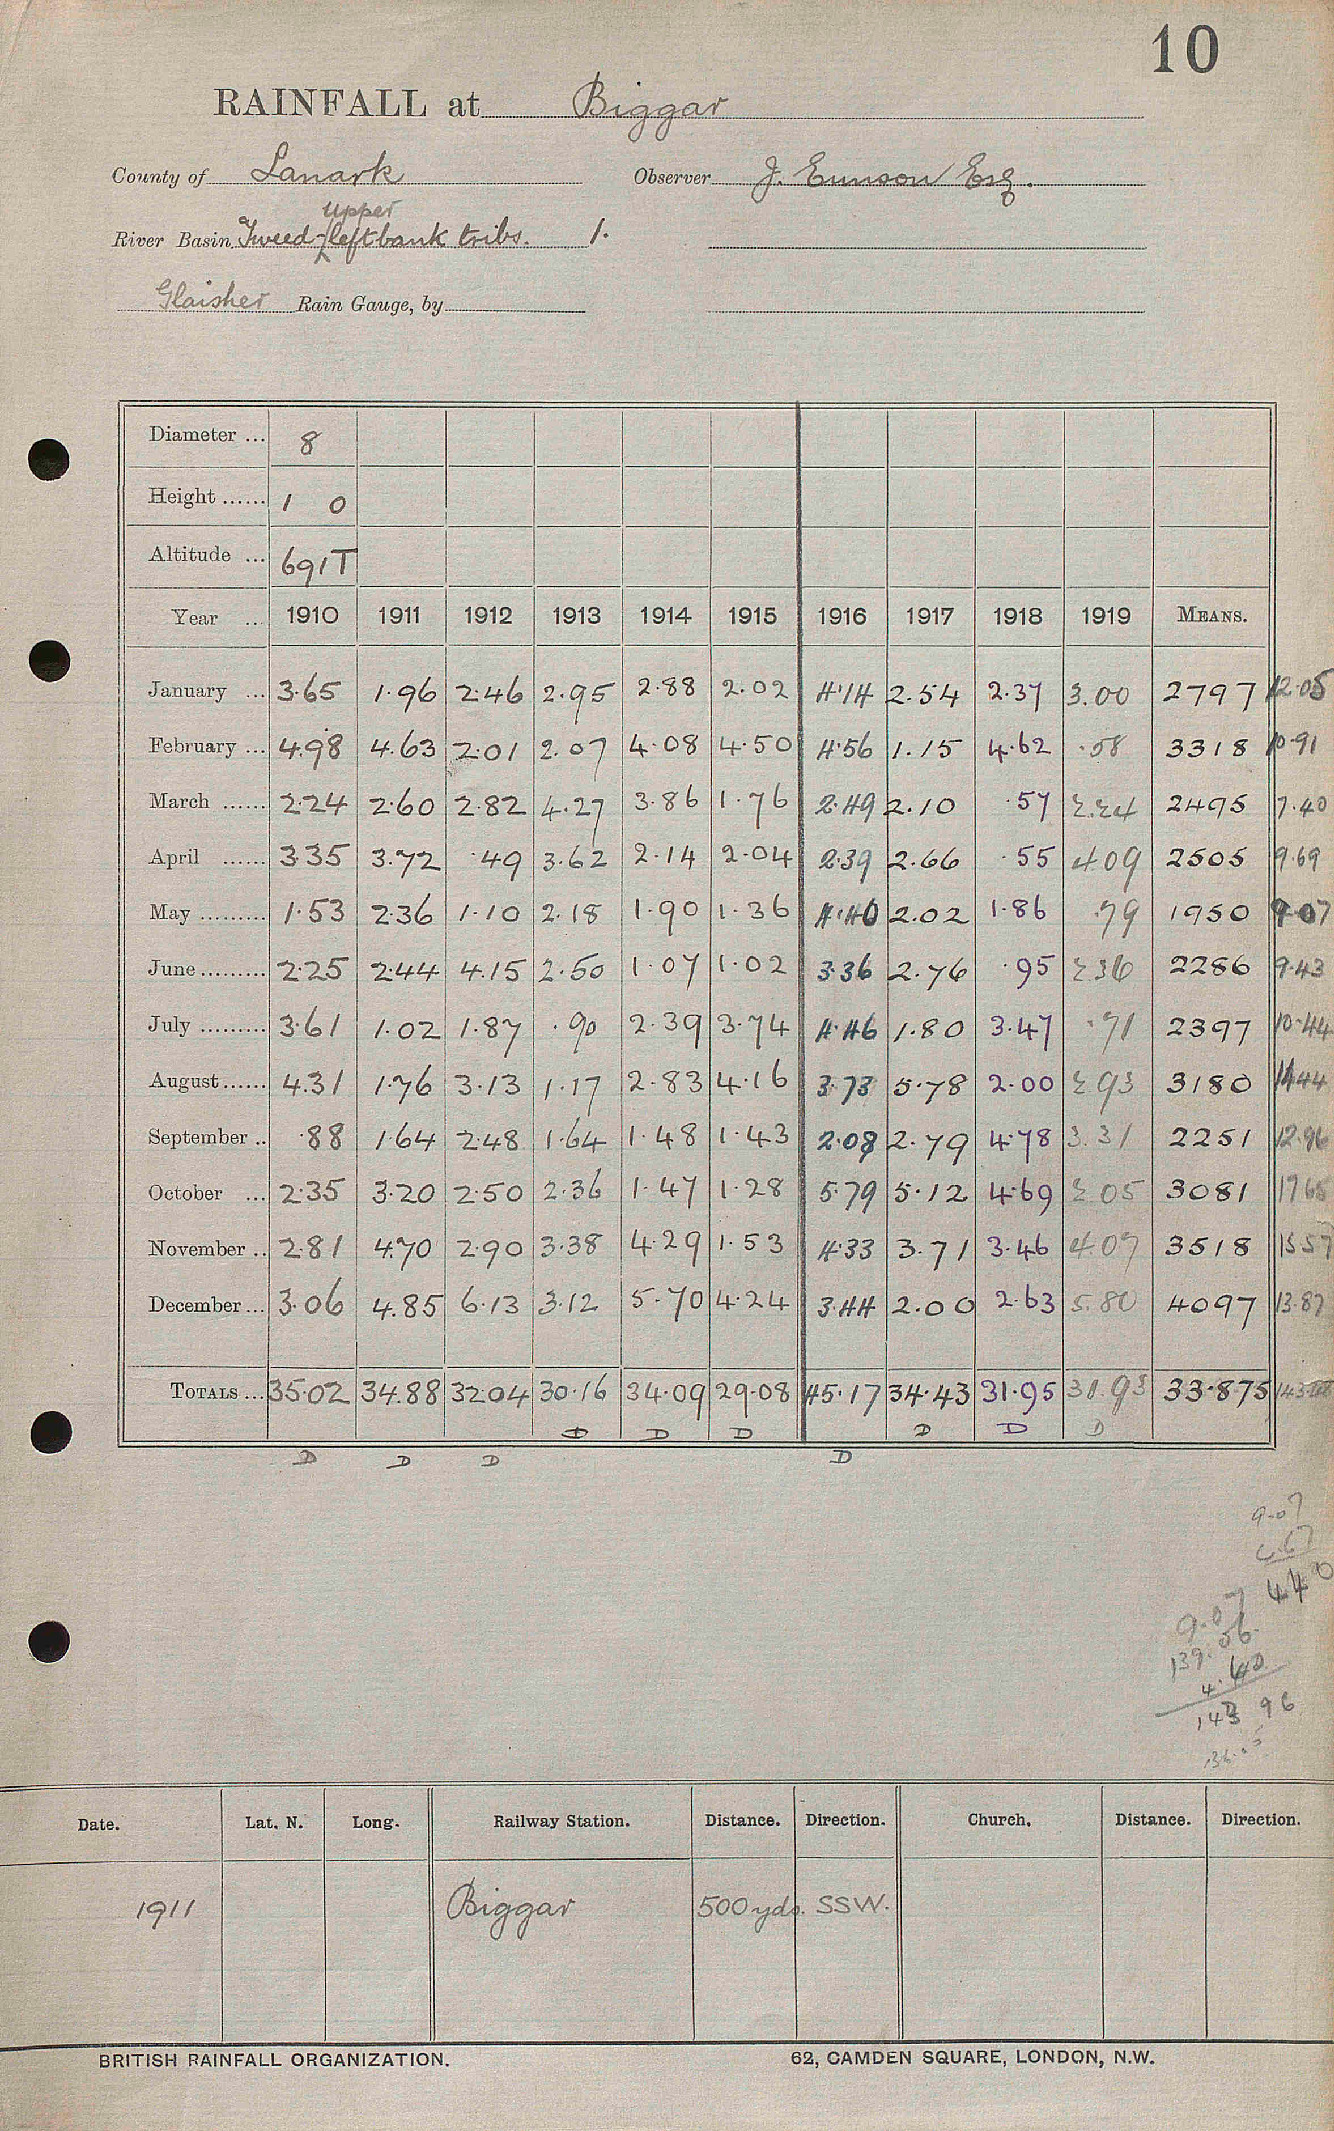 10
RAINFALL at Biggar
County of Lanark Observer J. Eunson Esq.
upper
River Basin Tweed-leftbank tribs. 1.
Glaisher Rain Gauge, by
Diameter ... 8
Height ...... 1 0
Altitude ... 691T
Year ... 1910 1911 1912 1913 1914 1915 1916 1917 1918 1919 MEANS.
January ... 3.65 1.96 2.46 2.95 2.88 2.02 4.14 2.54 2.37 3.00 2797 12.05
February ... 4.98 4.63 2.01 2.07 4.08 4.50 4.56 1.15 4.62 .58 3318 10.91
March ...... 2.24 2.60 2.82 4.27 3.86 1.76 2.49 2.10 .57 2.24 2495 7.40
April ...... 3.35 3.72 .49 3.62 2.14 2.04 2.39 2.66 .55 4.09 2505 9.69
May ......... 1.53 2.36 1.10 2.18 1.90 1.36 4.40 2.02 1.86 .79 1950 9.07
June ......... 2.25 2.44 4.15 2.50 1.07 1.02 3.36 2.76 .95 2.36 2286 9.43
July ......... 3.61 1.02 1.87 .90 2.39 3.74 4.46 1.80 3.47 .71 2397 10.44
August ...... 4.31 1.76 3.13 1.17 2.83 4.16 3.73 5.78 2.00 2.93 3180 14.44
September .. .88 1.64 2.48 1.64 1.48 1.43 2.08 2.79 4.78 3.31 2251 12.96
October ... 2.35 3.20 2.50 2.36 1.47 1.28 5.79 5.12 4.69 2.05 3081 17.65
November .. 2.81 4.70 2.90 3.38 4.29 1.53 4.33 3.71 3.46 4.07 3518 15.57
December ... 3.06 4.85 6.13 3.12 5.70 4.24 3.44 2.00 2.63 5.80 4097 13.87
TOTALS ... 35.02 34.88 32.04 30.16 34.09 29.08 45.17 34.43 31.95 31.93 33.875
D D D D D D
D D D D
9.07
4.67
4.40
9.07
139.56
4.40
143 96
Date. Lat. N. Long. Railway Station. Distance. Direction. Church. Distance. Direction.
1911 Biggar 500 yds. SSW.
BRITISH RAINFALL ORGANIZATION. 62, CAMDEN SQUARE, LONDON, N.W.